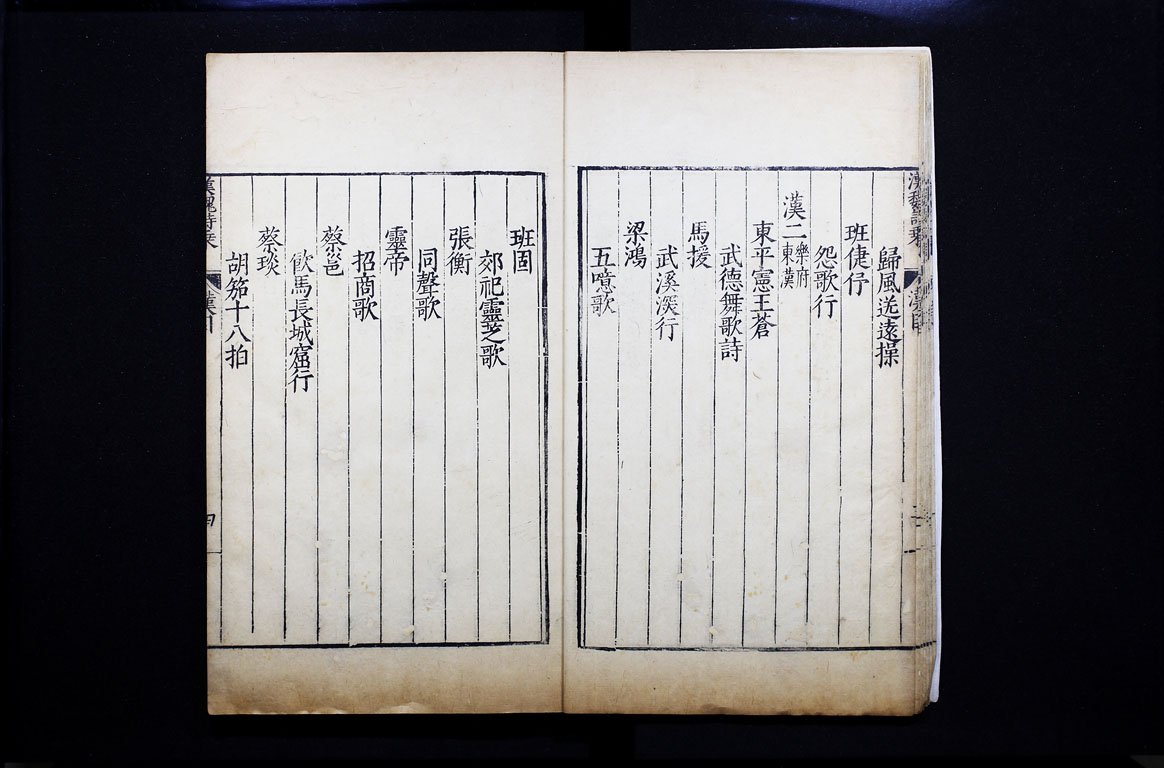 歸風送遠操
班倢伃
怨歌行
漢二樂府東漢
東平憲王蒼
武德舞歌詩
馬援
武溪深行
梁鴻
五噫歌
班固
郊祀靈芝歌
張衡
同聲歌
靈帝
招商歌
蔡邕
飲馬長城窟行
蔡琰
胡笳十八拍
漢魏詩乘
漢目
四